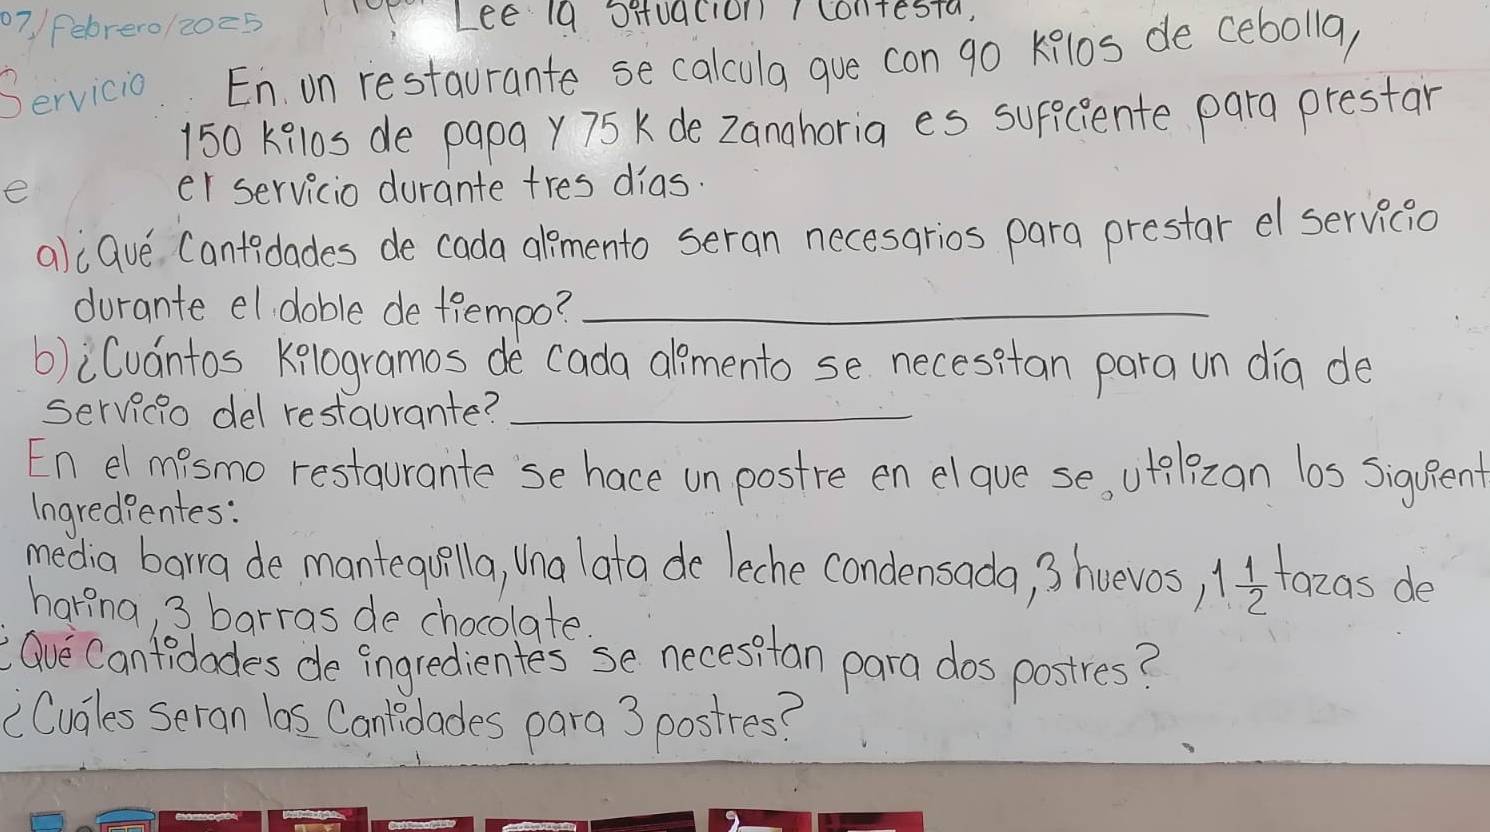 07/Febrero/2025
Lee la situación y contesta.
Servicio En un restaurante se calcula que con 90 kilos de cebolla,
150 kilos de papa y 75 K de zanahoria es suficiente para prestar
e er servicio durante tres días.
a) ¿Qué Cantidades de cada alimento seran necesarios para prestar el servicio
durante el doble de tiempo?
b) ¿Cuántos Kilogramos de cada alimento se necesitan para un día de
servicio del restaurante?
En el mismo restaurante se hace un postre en el que se utilizan los siguient
Ingredientes:
media barra de mantequilla, una lata de leche condensada, 3 huevos, 1 1/2 tazas de
harina, 3 barras de chocolate.
¿Qué Cantidades de ingredientes se necesitan para dos postres?
¿Cuáles Seran las Cantidades para 3 postres?